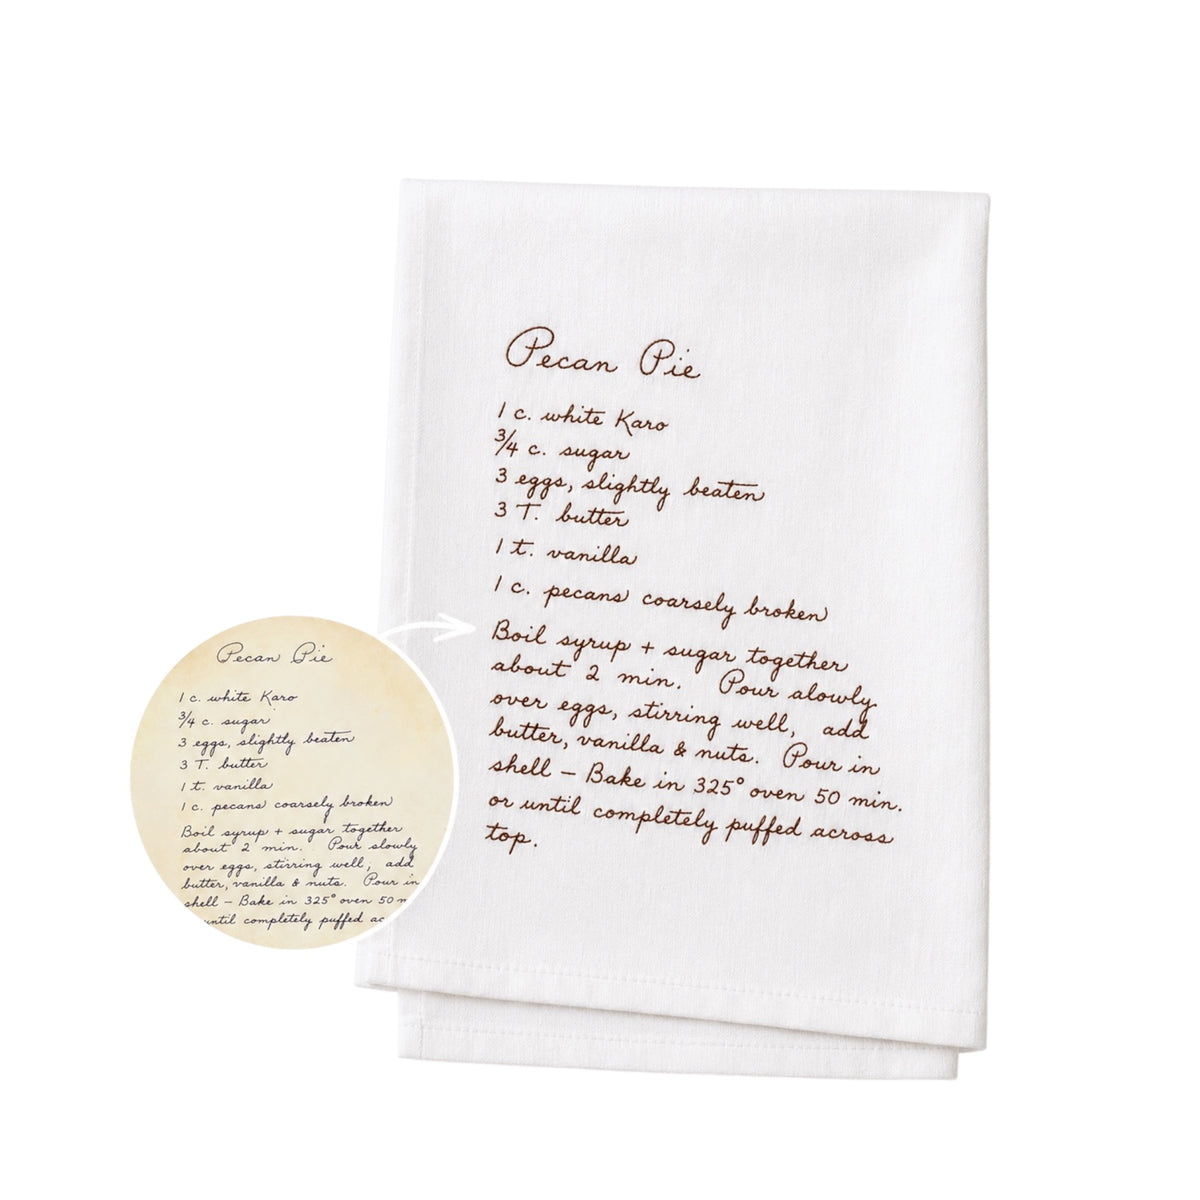 Pecan Pie
1 c. white Karo
3/4 c. sugar
3 eggs, slightly beaten
3 T. butter
1 t. vanilla
1 c. pecans coarsely broken
Boil syrup + sugar together
about 2 min. Pour alowly
over eggs, stirring well, add
butter, vanilla & nuts. Pour in
shell – Bake in 325° oven 50 min.
or until completely puffed across
top.
Pecan Pie
1 c. white Karo
3/4 c. sugar
3 eggs, slightly beaten
3 T. butter
1 t. vanilla
1 c. pecans coarsely broken
Boil syrup + sugar together
about 2 min. Pour slowly
over eggs, stirring well, add
butter, vanilla & nuts. Pour in
shell – Bake in 325° oven 50 m
until completely puffed ac